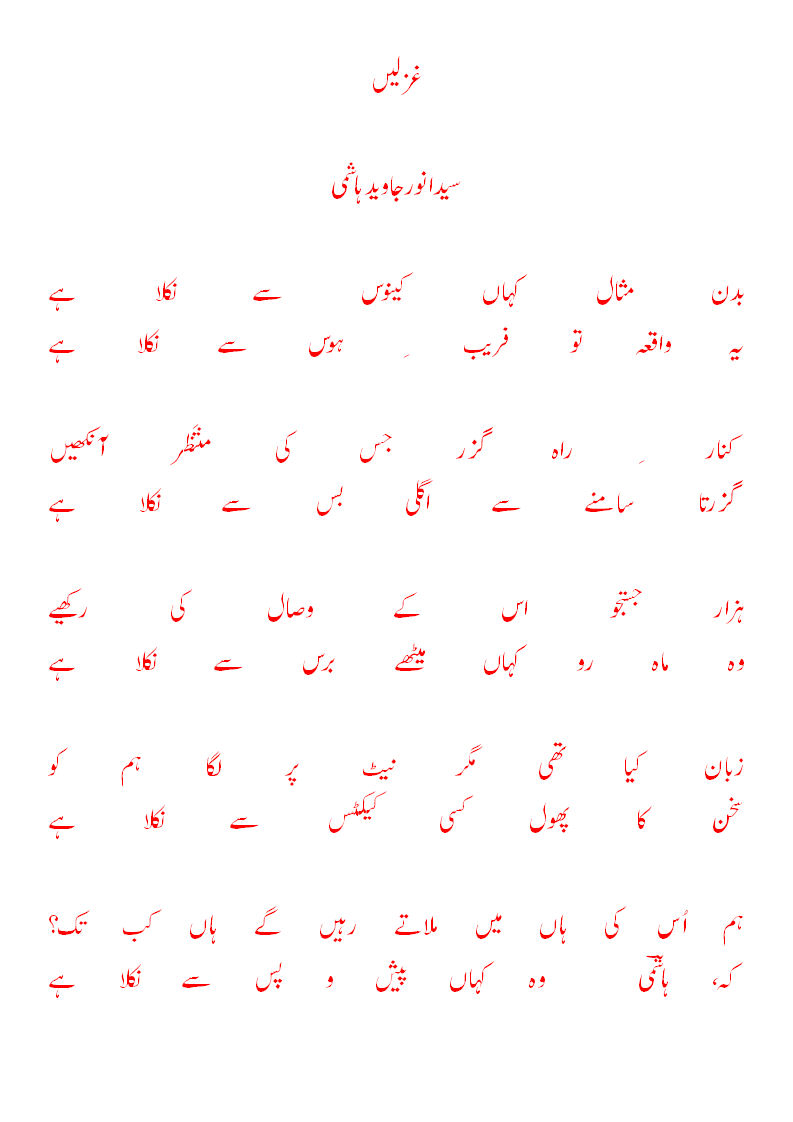 غزلیں
سیدانورجاوید ہاشمی
بدن مثال کہاں کینوس سے نکلا ہے
یہ واقعہ تو فریب ِ ہوس سے نکلا ہے
کنار ِ راہ گزر جس کی منتَظر آنکھیں
گزرتا سامنے سے اگلی بس سے نکلا ہے
ہزار جستجو اس کے وصال کی رکھیے
وہ ماہ رو کہاں میٹھے برس سے نکلا ہے
زبان کیا تھی مگر نیٹ پر لگا ہم کو
سخن کا پھول کسی کیکٹس سے نکلا ہے
ہم اُس کی ہاں میں ملاتے رہیں گے ہاں کب تک؟
کہ، ہاشمیؔ وہ کہاں پیش و پس سے نکلا ہے